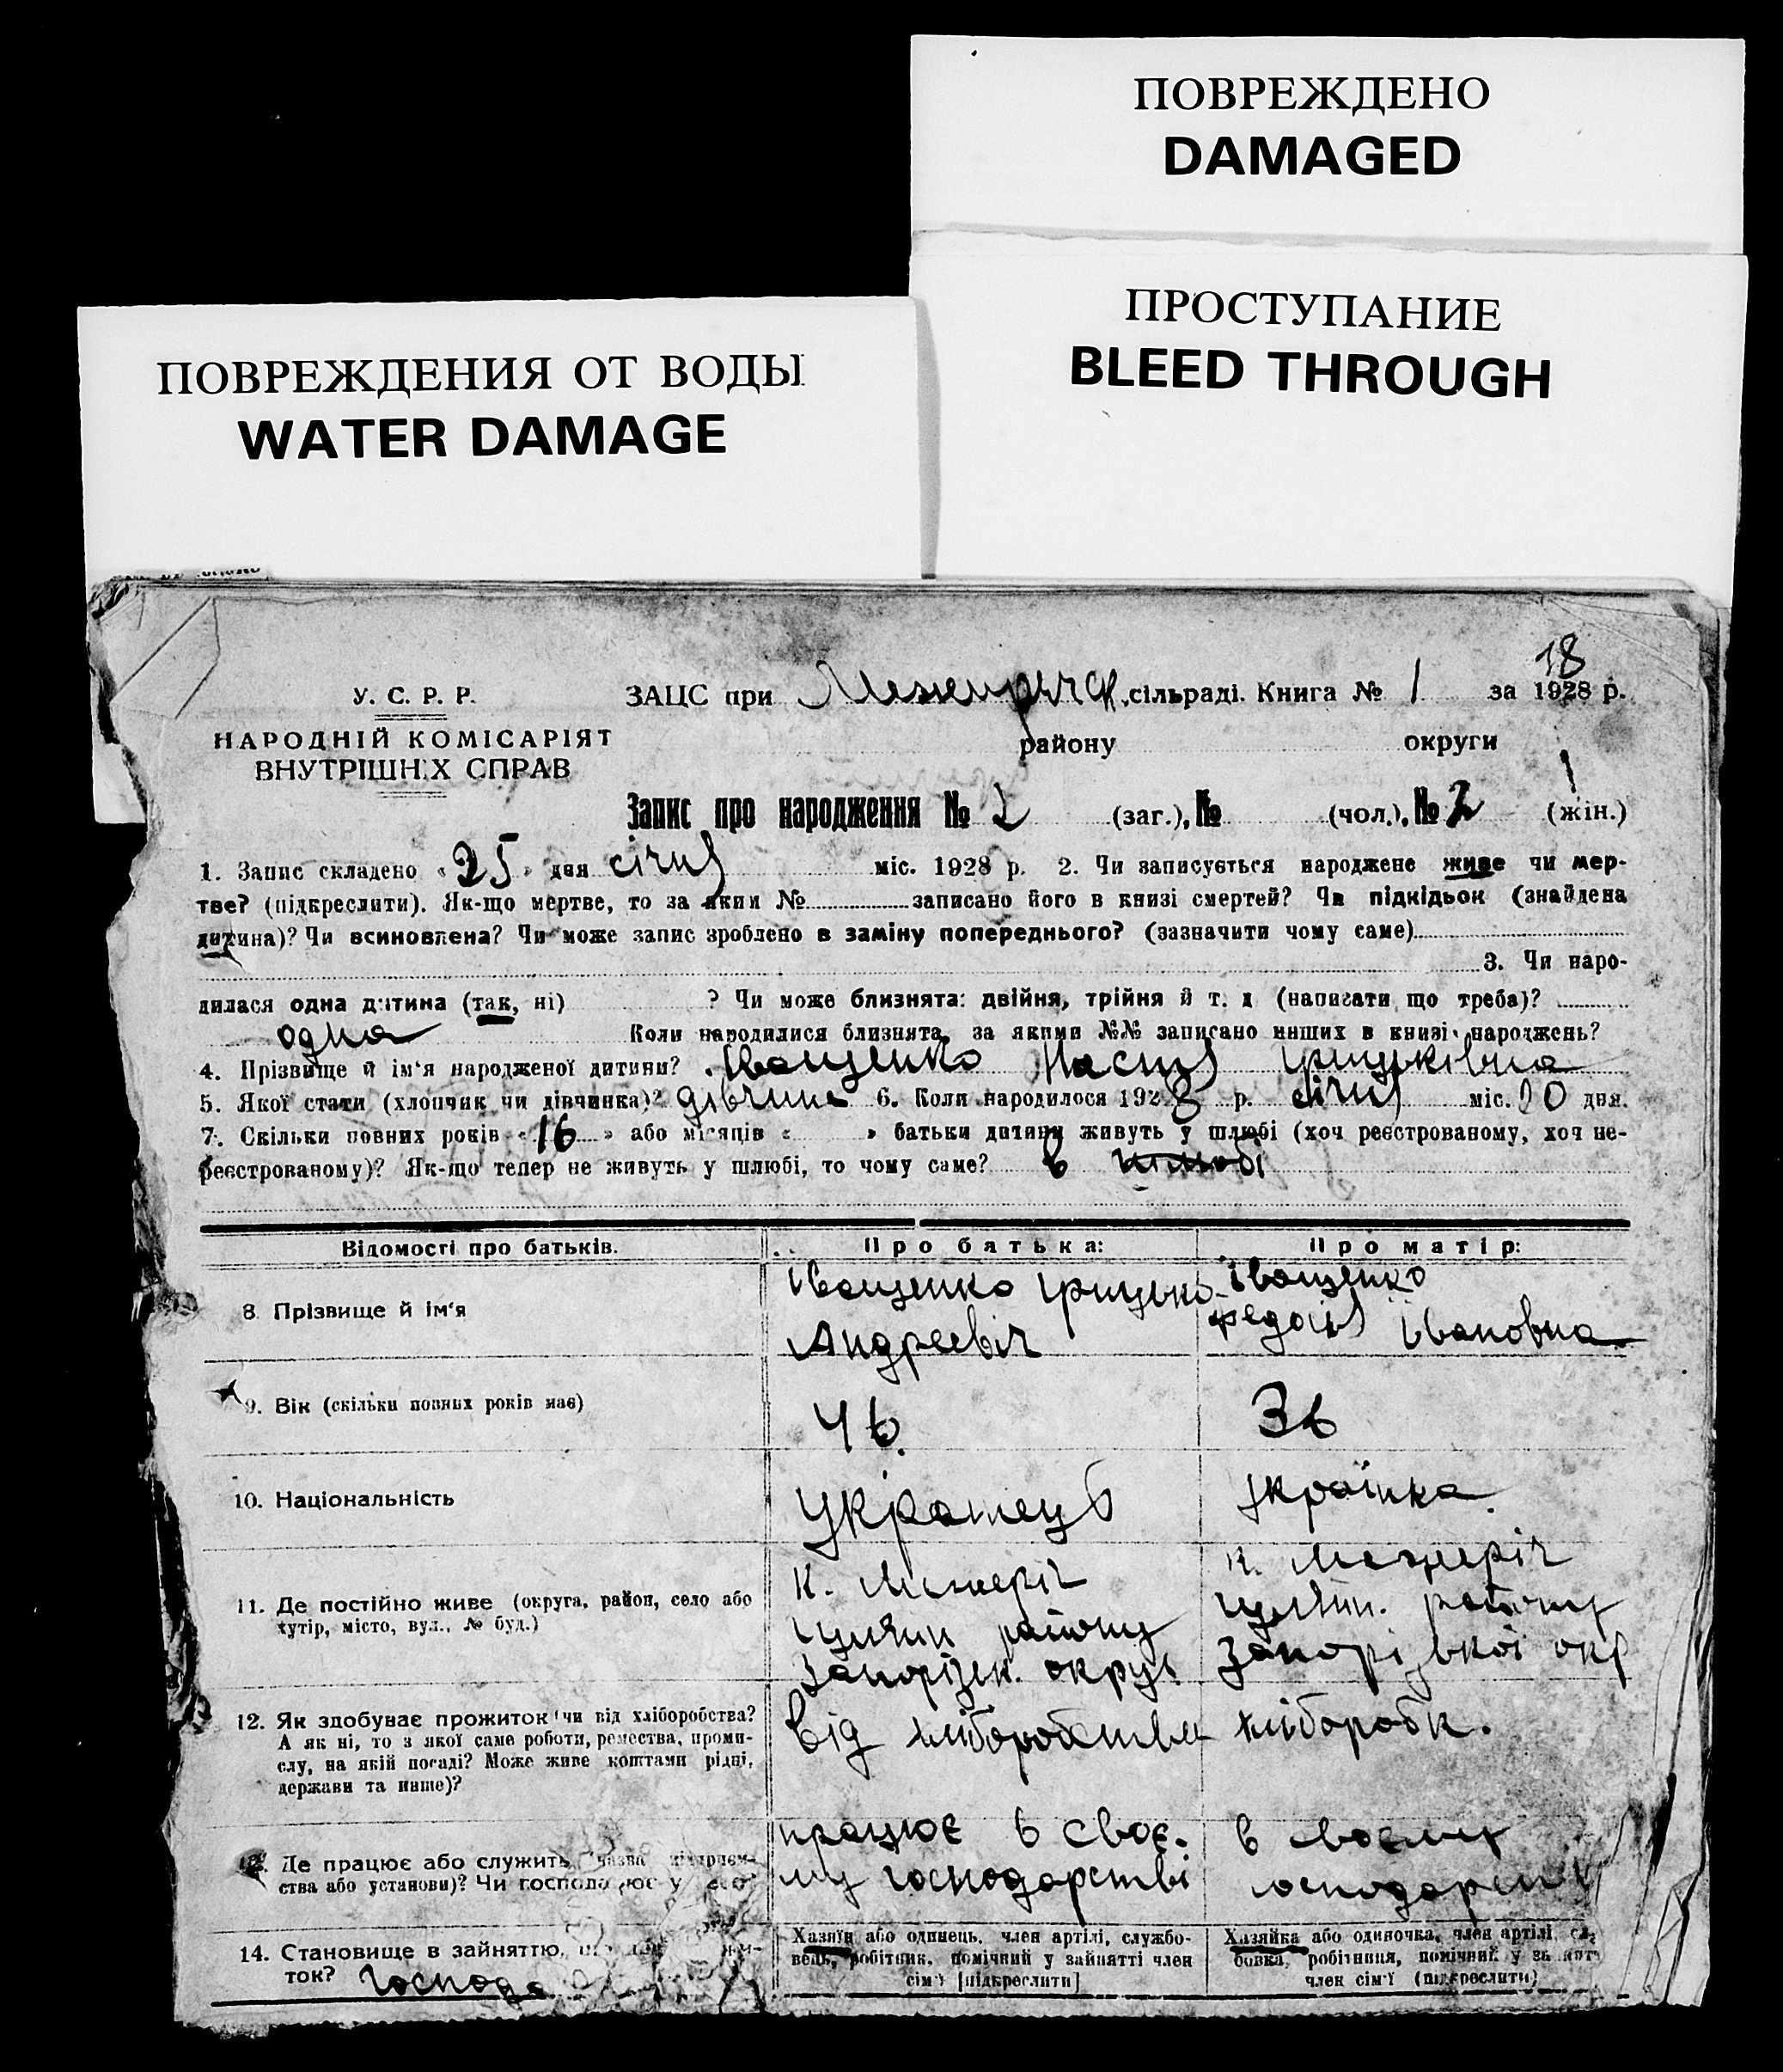 ПОВРЕЖДЕНО
DAMAGED
ПРОСТУПАНИЕ
BLEED THROUGH
ПОВРЕЖДЕНИЯ ОТ ВОДЫ
WATER DAMAGE
18
У. С. Р. Р.
НАРОДНІЙ КОМІСАРІЯТ
ВНУТРІШНІХ СПРАВ
ЗАЦС при Межиричск. сільраді. Книга № 1 за 1928 р.
району округи
Запис про народження № 2 (заг.), № (чол.), № 2 (жін.)
1. Запис складено «25» дня січня міс. 1928 р. 2. Чи записується народжене живе чи мер-
тве? (підкреслити). Як-що мертве, то за яким № записано його в книзі смертей? Чи підкідьок (знайдена
дитина)? Чи всиновлена? Чи може запис зроблено в заміну попереднього? (зазначити чому саме)
3. Чи наро-
дилася одна дитина (так, ні) ? Чи може близнята: двійня, трійня й т. д (написати що треба)?
одна Коли народилися близнята, за якими №№ записано инших в книзі народжень?
4. Прізвище й ім'я народженої дитини? Іващенко Настя Грицьківна
5. Якої стати (хлопчик чи дівчинка)? дівчина 6. Коли народилося 1928 р. січня міс. 20 дня.
7. Скільки повних років «16» або місяців « » батьки дитини живуть у шлюбі (хоч реєстрованому, хоч не-
реєстрованому)? Як-що тепер не живуть у шлюбі, то чому саме? в шлюбі
Відомості про батьків. Про батька: Про матір:
8. Прізвище й ім'я
Іващенко Грицько
Андреєвіч
Іващенко
Федосія Івановна
9. Вік (скільки повних років має) 46. 36
10. Національність Украінець Українка.
11. Де постійно живе (округа, район, село або
хутір, місто, вул., № буд.)
к. Межеріч
району
Запорізьк. округ.
к. Межеріч
району
Запорізької окр
12. Як здобуває прожиток (чи від хліборобства?
А як ні, то з якої саме роботи, ремества, проми-
слу, на якій посаді? Може живе коштами рідні,
держави та инше)?
від хліборобства хлібороб.
Де працює або служить (назва підприєм-
ства або установи)? Чи господарює у
працює в своє-
му господарстві
в своєму
14. Становище в зайняттю,
ток? господа
Хазяїн або одинець, член артілі, службо-
вець, робітник, помічний у зайнятті член
сім'ї [підкреслити]
Хазяйка або одиночка, член артілі,
бовка, робітниця, помічний у
член сім'ї (підкреслити)